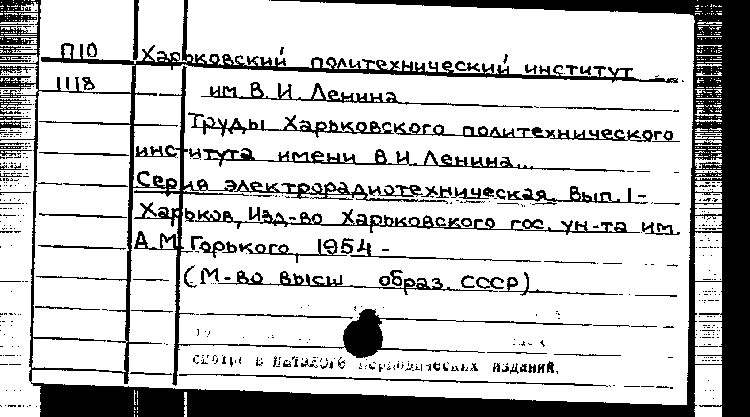 П10 Харьковский политехнический институт
1118 им. В. И. Ленина
Труды Харьковского политехнического
института имени В. И. Ленина...
Серия электрорадиотехническая. Вып. 1-
Харьков, Изд-во Харьковского гос. ун-та им.
А. М. Горького, 1954 -
(М-во высш. образ. СССР).
смотри в каталоге периодических изданий.